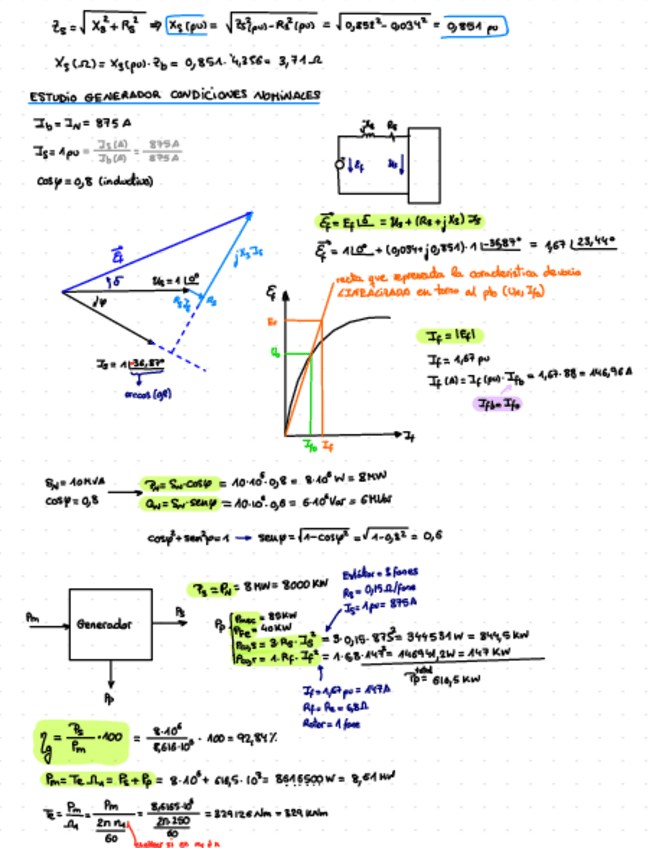 Zs = √(Xs² + Rs²) ⇒ Xs(pu) = √(Zs²(pu) - Rs²(pu)) = √(0,852² - 0,034²) = 0,851 pu
Xs(Ω) = Xs(pu)·Zb = 0,851·4,356 = 3,71 Ω
ESTUDIO GENERADOR CONDICIONES NOMINALES
Ib = IN = 875 A
Is = 1 pu = Is(A)/Ib(A) = 875A/875A
cosφ = 0,8 (inductivo)
jXs Rs
Ef Us
Ef = Ef|δ = Us + (Rs + jXs) Is
Ef = 1|0° + (0,034 + j0,851)·1|-36,87° = 1,67 |23,44°
Ef
jXs Is
δ
Us = 1|0°
φ
Rs Is
Is = 1|-36,87°
arccos(0,8)
recta que representa la característica de vacío
LINEALIZADA en torno al pto (Un, Ifo)
Ef
If
Ifo If
If = |Ef|
If = 1,67 pu
If(A) = If(pu)·Ifb = 1,67·88 = 146,96 A
Ifb = Ifo
SN = 10 MVA
cosφ = 0,8
PN = SN·cosφ = 10·10⁶·0,8 = 8·10⁶ W = 8MW
QN = SN·senφ = 10·10⁶·0,6 = 6·10⁶ Var = 6 MVar
cosφ² + sen²φ = 1 → senφ = √(1-cosφ²) = √(1-0,8²) = 0,6
Pm
Generador
Ps
Pp
Ps = PN = 8 MW = 8000 KW
Estátor = 3 fases
Rs = 0,15 Ω/fase
Is = 1 pu = 875A
Pp
Pmec = 85KW
PFe = 40KW
= 3·Rs·Is² = 3·0,15·875² = 344531 W = 344,5 KW
= 1·Rf·If² = 1·6,8·147² = 146941,2W = 147 KW
Pp total = 616,5 KW
If = 1,67 pu = 147A
Rf = Re = 6,8Ω
Rotor = 1 fase
ηg = Ps/Pm·100 = 8·10⁶/8,616·10⁶ · 100 = 92,84%
Pm = Te·Ω1 = Ps + Pp = 8·10⁶ + 616,5·10³ = 8616500 W = 8,61 MW
Te = Pm/Ω1 = Pm/(2π n1/60) = 8,6165·10⁶/(2π·250/60) = 329126 Nm = 329 kNm